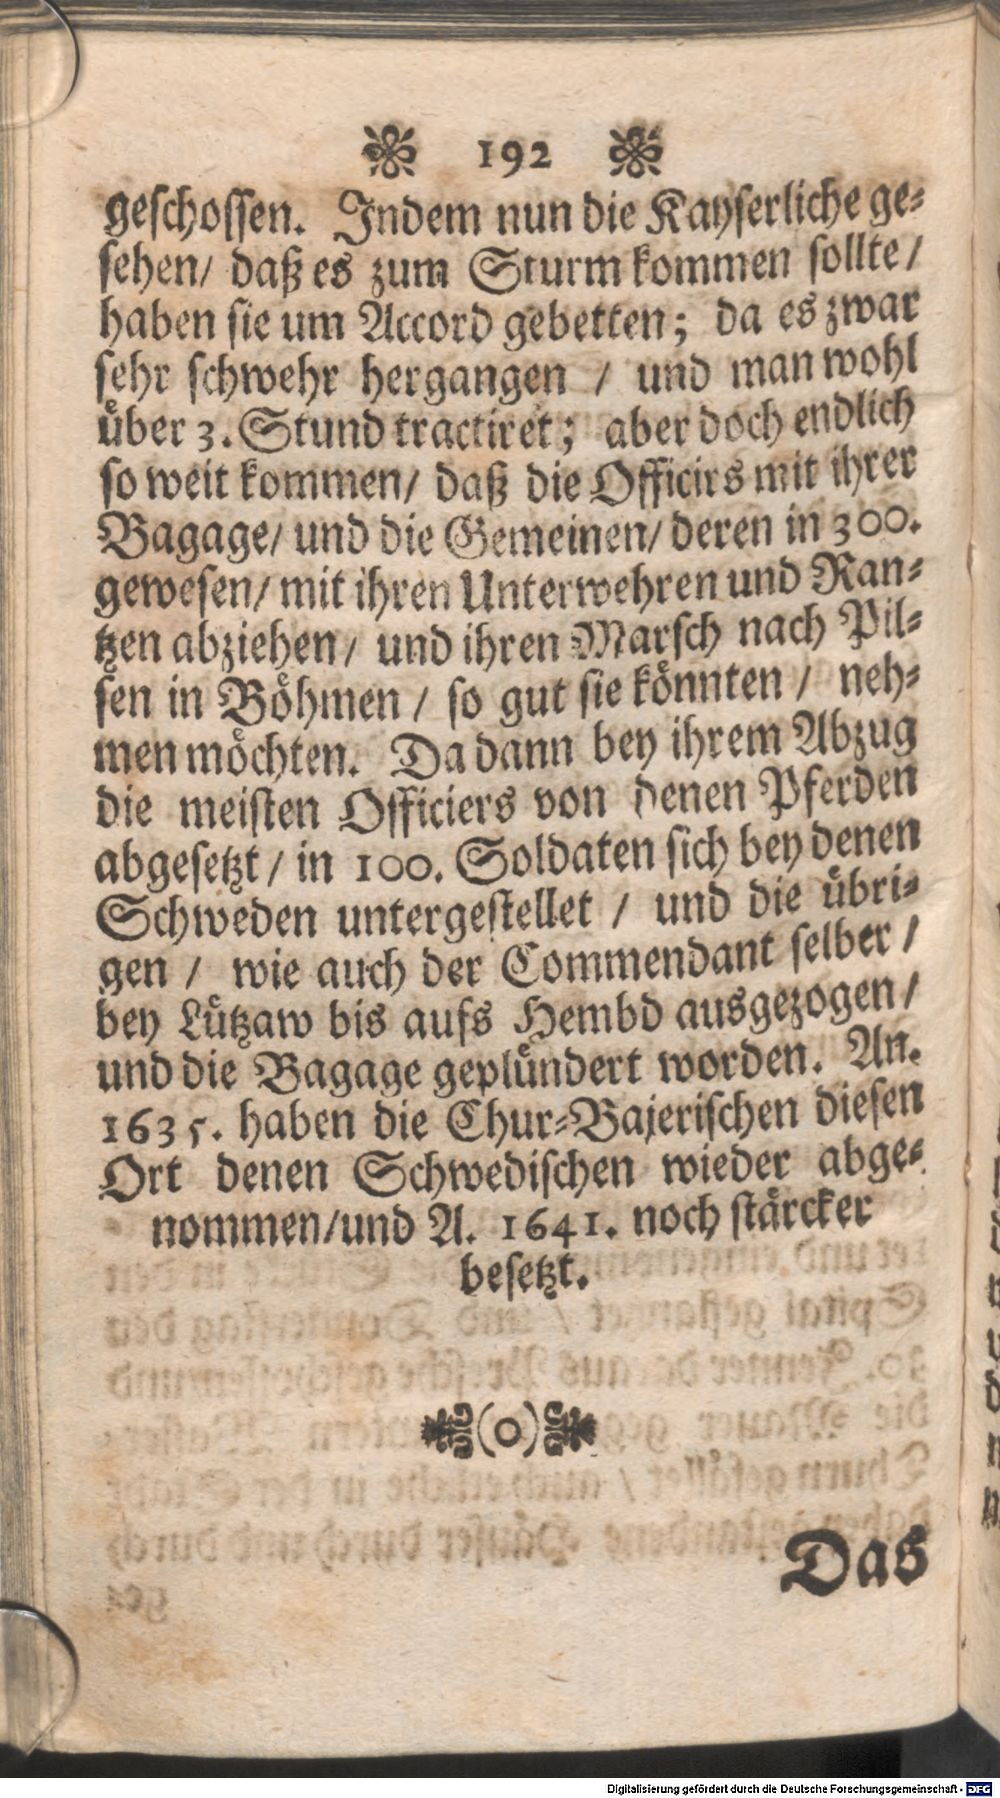 192
geschossen. Indem nun die Kayserliche ge-
sehen/ daß es zum Sturm kommen sollte/
haben sie um Accord gebetten; da es zwar
sehr schwehr hergangen / und man wohl
über 3. Stund tractiret; aber doch endlich
so weit kommen/ daß die Officirs mit ihrer
Bagage/ und die Gemeinen/ deren in 300.
gewesen/ mit ihren Unterwehren und Ran-
tzen abziehen/ und ihren Marsch nach Pil-
sen in Böhmen / so gut sie könnten / neh-
men möchten. Da dann bey ihrem Abzug
die meisten Officiers von denen Pferden
abgesetzt / in 100. Soldaten sich bey denen
Schweden untergestellet / und die übri-
gen / wie auch der Commendant selber /
bey Lützaw bis aufs Hembd ausgezogen/
und die Bagage geplündert worden. An.
1635. haben die Chur-Bajerischen diesen
Ort denen Schwedischen wieder abge-
nommen/und A. 1641. noch stärcker
besetzt.
(o)
Das
Digitalisierung gefördert durch die Deutsche Forschungsgemeinschaft - DFG